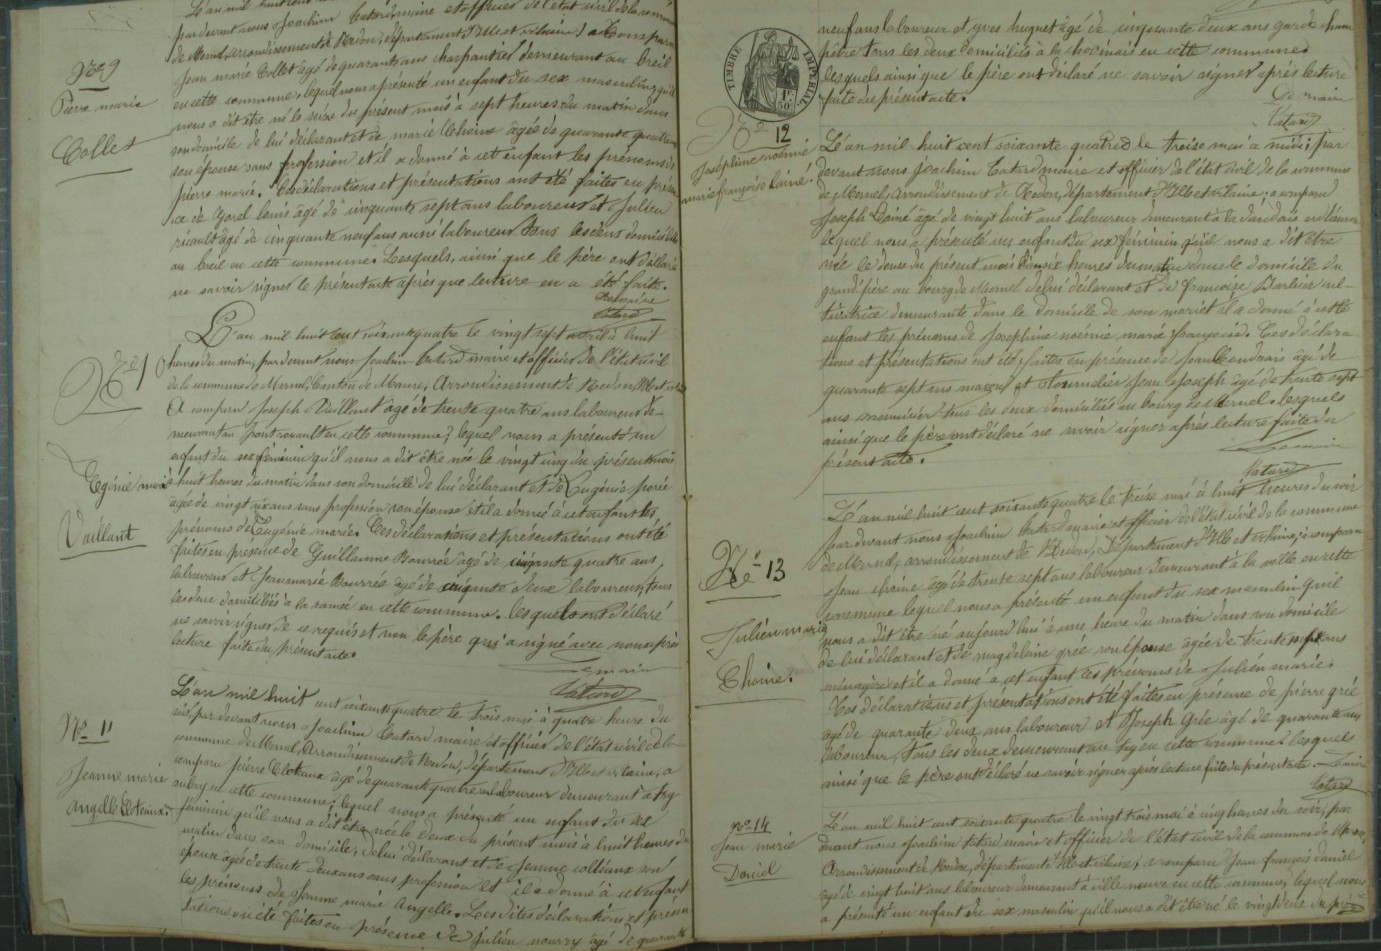 par devant nous Joachim Catard maire et officier de l'état civil de la commune
de Mernel, arrondissement de Redon, département d'Ille et vilaine, a comparu
N° 9
Pierre marie
Collet
jean marie Collet âgé de quarante ans charpentier demeurant au breil
en cette commune, lequel nous a présenté un enfant du sex masculin qu'il
nous a dit être né le seize du présent mois à sept heures du matin dans
son domicile de lui déclarant et de marie Choine âgée de quarante quatre
son épouse sans profession et il a donné à cet enfant les prénoms de
pierre marie. Ces déclarations et présentations ont été faites en présen
ce de louis âgé de cinquante sept ans laboureur et Julien
ricault âgé de cinquante neuf ans aussi laboureur tous les deux domiciliés
au breil en cette commune. Lesquels, ainsi que le père ont déclaré
ne savoir signer le présent acte après que lecture en a été faite.
Le maire
Catard
N° 10
Egénie marie
Vaillant
L'an mil huit cent soixante quatre le vingt sept avril à huit
heures du matin, par devant nous Joachim Catard maire et officier de l'état civil
de la commune de Mernel, Canton de Maure, Arrondissement de Redon
A comparu Joseph Vaillant âgé de trente quatre ans laboureur de-
meurant au pont rouault en cette commune, lequel nous a présenté un
enfant du sex féminin qu'il nous a dit être née le vingt cinq du présent mois
à huit heures du matin dans son domicile de lui déclarant et de Eugénie
âgée de vingt six ans sans profession son épouse et il a donné à cet enfant les
prénoms de Eugénie marie. Ces déclarations et présentations ont été
faites en présence de Guillaume Bourrée âgé de cinqante quatre ans
laboureur et Jean marie Bourrée âgé de cinqante deux laboureur, tous
les deux domiciliés à la ramée en cette commune. lesquels ont déclaré
ne savoir signer de ce requis et non le père qui a signé avec nous après
lecture faite du présent acte.
Le maire
Catard
N° 11
Jeanne marie
angelle Cloteaux
L'an mil huit cent soixante quatre le trois mai à quatre heure du
soir, par devant nous Joachim Catard maire et officier de l'état civil de la
commune de Mernel, Arrondissement de Redon, département d'Ille et vilaine, a
comparu pierre Cloteaux âgé de quarante quatre ans laboureur demeurant à
en cette commune, lequel nous a présenté un enfant du sex
féminin qu'il nous a dit être née le deux du présent mois à huit heures du
matin dans son domicile, de lui déclarant et de Jeanne collieux son
épouse âgée de trente deux ans sans profession et il a donné à cet enfant
les prénoms de Jeanne marie Angelle. Les dites déclarations et présen
tations ont été faites en présence de Julien nourry âgé de quarante
TIMBRE IMPERIAL
1F.
50C.
neuf ans laboureur et yves huguet âgé de cinquante deux ans garde cham
pêtre tous les deux domiciliés à la en cette commune
Lesquels ainsi que le père ont déclaré ne savoir signer après lecture
faite du présent acte.
Le maire
Catard
N° 12
Joséphine noémie
marie françoise Lainé.
L'an mil huit cent soixante quatre le treise mai à midi; par
devant nous Joachim Catard maire et officier de l'état civil de la commune
de Mernel, arrondissement de Redon, département d'Ille et vilaine; a comparu
Joseph Lainé âgé de vingt huit ans laboureur demeurant à
lequel nous a présenté un enfant du sex féminin qu'il nous a dit être
née le douse du présent mois à heures du matin dans le domicile du
grand père au bourg de Mernel de lui déclarant et de françoise Barbier cul-
tivatrice demeurante dans le domicile de son mari et il a donné à cette
enfant les prénoms de Joséphine noémie marie françoise. Ces déclara
tions et présentations ont été faites en présence de Jean âgé de
quarante sept ans maçon et Jean Joseph âgé de trente sept
ans menuisier tous les deux domiciliés au bourg de Mernel. lesquels
ainsi que le père ont déclaré ne savoir signer après lecture faite du
présent acte.
Le maire
Catard
N° 13
Julien marie
Choine.
L'an mil huit cent soixante quatre le treise mai à huit heures du soir
par devant nous Joachim Catard maire et officier de l'état civil de la commune
de Mernel, arrondissement de Redon, Département d'Ille et vilaine, a comparu
Jean choine âgé de trente sept ans laboureur demeurant à la ville en cette
commune lequel nous a présenté un enfant du sex masculin qu'il
nous a dit être né aujourd'hui à une heure du matin dans son domicile
de lui déclarant et de magdelaine grée son épouse âgée de trente sept ans
ménagère et il a donné à cet enfant les prénoms de Julien marie.
Ces déclarations et présentations ont été faites en présence de pierre grée
âgé de quarante deux ans laboureur et Joseph Grée âgé de quarante ans
laboureur, tous les deux demeurant au en cette commune. lesquels
ainsi que le père ont déclaré ne savoir signer après lecture faite du présent acte.
Le maire
Catard
N° 14
Jean marie
Daniel
L'an mil huit cent soixante quatre le vingt trois mai à cinq heures du soir, par
devant nous Joachim Catard maire et officier de l'état civil de la commune de Mernel
Arrondissement de Redon, département d'Ille et vilaine, a comparu Jean françois daniel
âgé de vingt huit ans laboureur demeurant à ville neuve en cette commune, lequel nous
a présenté un enfant du sex masculin qu'il nous a dit être né le vingt deux du